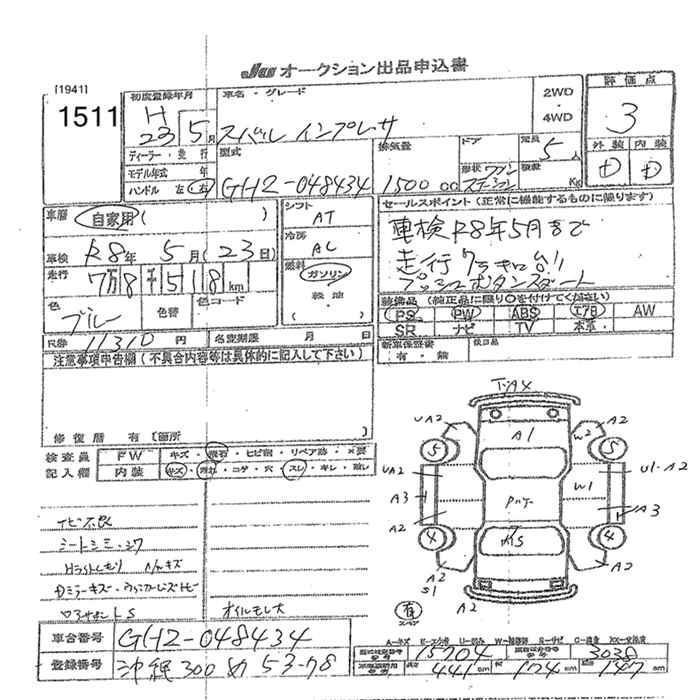 JU オークション出品申込書
[1941]
1511
初度登録年月
H 23 5 月
車名・グレード
スバル インプレッサ
2WD
・
4WD
評価点
3
外装 内装
D D
ディーラー・並行
モデル年式 年
ハンドル 左 右
型式
GH2-048434
排気量
1500 cc
ドア
形状 ワゴン
ステーション
定員
5 人
積載
Kg
車歴 自家用 ( )
車検 R8年 5月 (23日)
走行 7万8千518 km
色 ブルー
色替
色コード
R券 11310 円
名変期限 月 日
シフト
AT
冷房
AC
燃料
ガソリン
軽油
セールスポイント (正常に機能するものに限ります)
車検R8年5月まで
走行7万キロ台!!
プッシュボタンスタート
装備品 (純正品に限り○を付けてください)
PS PW ABS エアB AW
SR ナビ TV 本革
新車保証書
有・無
後日品
注意事項申告欄 (不具合内容等は具体的に記入して下さい)
修復歴 有 [箇所
検査員
記入欄
FW キズ・飛石・ヒビ割・リペア跡・×要
内装 キズ・汚れ・コゲ・穴・スレ・キレ・
シートシミ・シワ
オイルモレ大
車台番号 GH2-048434
登録番号 沖縄300 53-78
UA2 A1 A2
5 W2 5
UA2 W1 U1-A2
A3 A3
A2
4 4
A2 A2
S1 A2
有
スペア
A-キズ U-凹み W-補修跡 S-サビ C-腐食
15704 3038
長さ 441 cm 幅 174 cm 高さ 147 cm